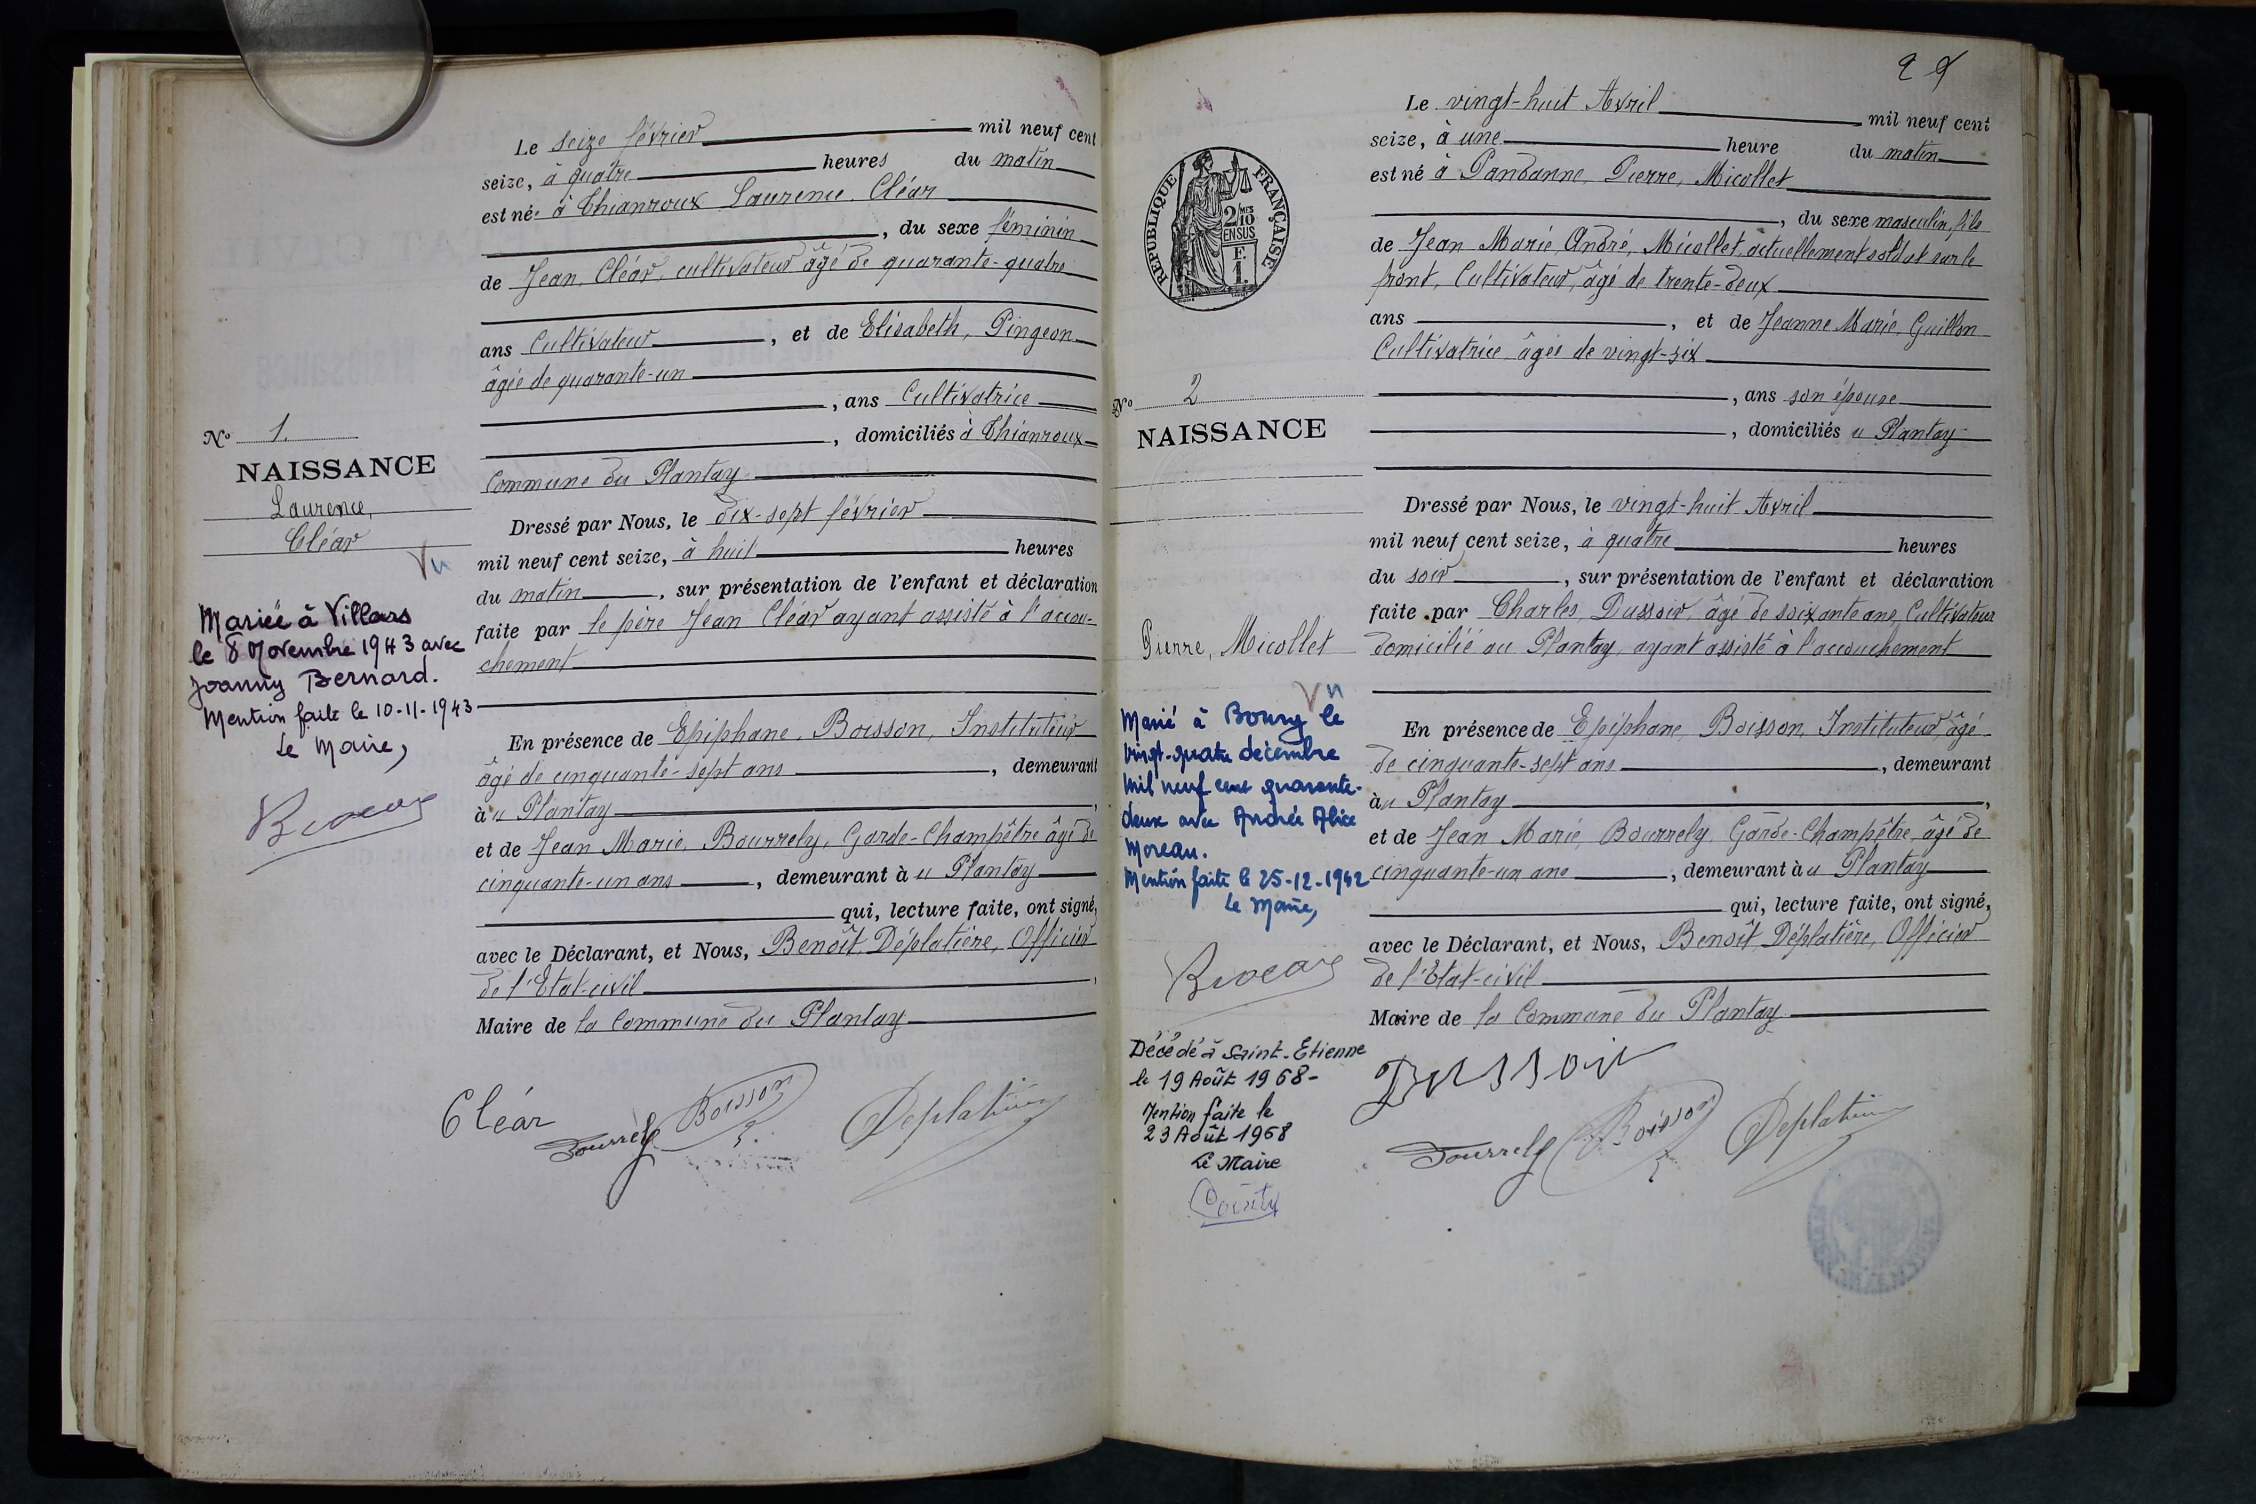 Le seize février mil neuf cent
seize, à quatre heures du matin
est née à Chianroux Laurence, Cléar
, du sexe féminin
de Jean, Cléar, cultivateur âgé de quarante-quatre
ans Cultivateur, et de Elisabeth, Pingeon
âgée de quarante-un
, ans Cultivatrice
, domiciliés à Chianroux
Commune du Plantay
Dressé par Nous, le dix-sept février
mil neuf cent seize, à huit heures
du matin, sur présentation de l'enfant et déclaration
faite par le père Jean Cléar ayant assisté à l'accou-
chement
En présence de Epiphane, Boisson, Instituteur
âgé de cinquante-sept ans, demeurant
àu Plantay,
et de Jean Marie, Bourrely, Garde-Champêtre âgé de
cinquante-un ans, demeurant àu Plantay
qui, lecture faite, ont signé,
avec le Déclarant, et Nous, Benoît, Déplatière, Officier
de l'Etat-civil,
Maire de la Commune du Plantay
Cléar
Bourrely
Boisson
Déplatière
No 1.
NAISSANCE
Laurence,
Cléar
Vu
Mariée à Villars
le 8 Novembre 1943 avec
Joanny Bernard.
Mention faite le 10-11-1943
Le Maire,
2
Le vingt-huit Avril mil neuf cent
seize, à une heure du matin
est né à Pandanne, Pierre, Micollet
, du sexe masculin, fils
de Jean Marie, André, Micollet, actuellement soldat sur le
front, Cultivateur, âgé de trente-deux
ans, et de Jeanne Marie Guillon
Cultivatrice âgée de vingt-six
, ans son épouse
, domiciliés u Plantay
Dressé par Nous, le vingt-huit Avril
mil neuf cent seize, à quatre heures
du soir, sur présentation de l'enfant et déclaration
faite par Charles, Dussoir, âgé de soixante ans, Cultivateur
domicilié au Plantay, ayant assisté à l'accouchement
En présence de Epiphane, Boisson, Instituteur, âgé
de cinquante-sept ans, demeurant
àu Plantay,
et de Jean Marie, Bourrely, Garde-Champêtre, âgé de
cinquante-un ans, demeurant àu Plantay
qui, lecture faite, ont signé,
avec le Déclarant, et Nous, Benoît, Déplatière, Officier
de l'Etat-civil
Maire de la Commune du Plantay
Dussoir
Bourrely
Boisson
Déplatière
RÉPUBLIQUE FRANÇAISE
2 MES
10
EN SUS
F.
1.
No 2
NAISSANCE
Pierre, Micollet
Vu
Marié à Bourg le
vingt-quatre décembre
mil neuf cent quarante-
deux avec Andrée Alice
Moreau.
Mention faite le 25-12-1942
Le Maire,
Décédé à Saint-Etienne
le 19 Août 1968-
Mention faite le
23 Août 1968
Le Maire